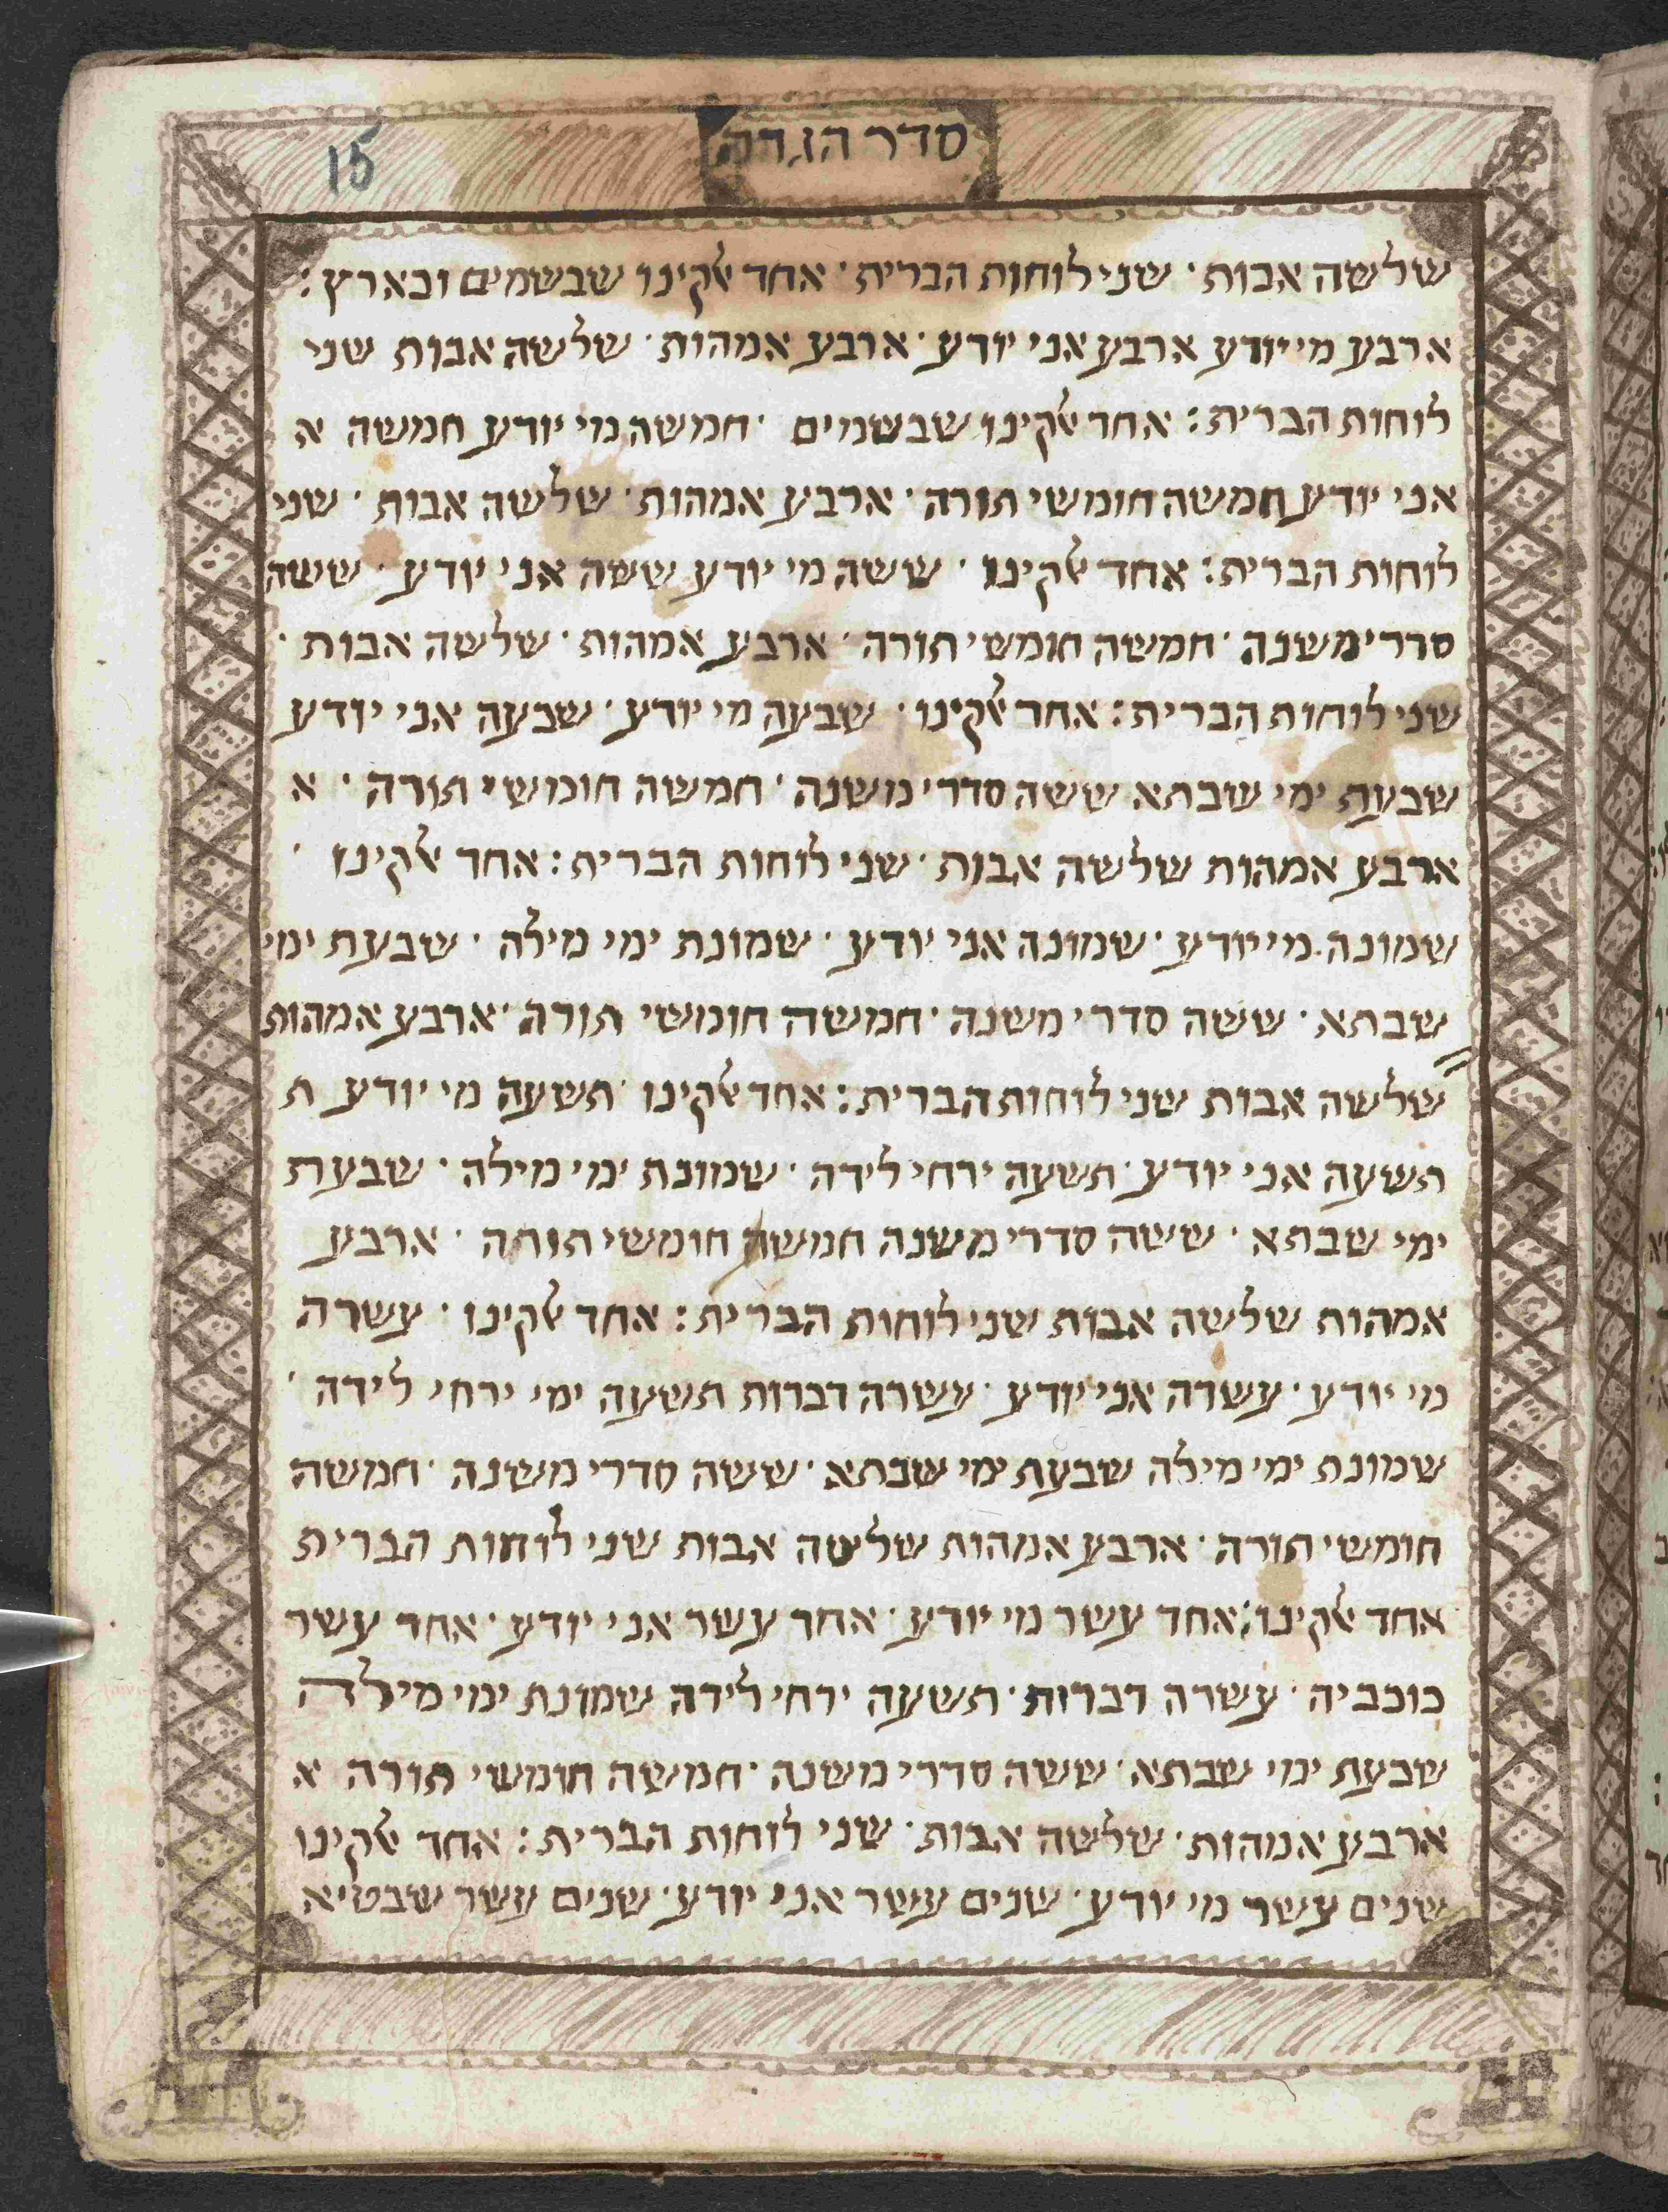 סדר הגדה
15
שלשה אבות · שני לוחות הברית · אחד אקינו שבשמים ובארץ :
ארבע מי יודע ארבע אני יודע · ארבע אמהות · שלשה אבות שני
לוחות הברית : אחד אקינו שבשמים · חמשה מי יודע חמשה א
אני יודע חמשה חומשי תורה · ארבע אמהות · שלשה אבות · שני
לוחות הברית : אחד אקינו · ששה מי יודע ששה אני יודע · ששה
סדרי משנה · חמשה חומשי תורה · ארבע אמהות · שלשה אבות ·
שני לוחות הברית : אחד אקינו · שבעה מי יודע · שבעה אני יודע
שבעת ימי שבתא ששה סדרי משנה · חמשה חומשי תורה · א
ארבע אמהות שלשה אבות · שני לוחות הברית : אחד אקינו ·
שמונה מי יודע · שמונה אני יודע · שמונת ימי מילה · שבעת ימי
שבתא · ששה סדרי משנה · חמשה חומשי תורה · ארבע אמהות
שלשה אבות שני לוחות הברית : אחד אקינו · תשעה מי יודע ת
תשעה אני יודע · תשעה ירחי לידה · שמונת ימי מילה · שבעת
ימי שבתא · ששה סדרי משנה חמשה חומשי תורה · ארבע
אמהות שלשה אבות שני לוחות הברית : אחד אקינו · עשרה
מי יודע · עשרה אני יודע · עשרה דברות תשעה ימי ירחי לידה ·
שמונת ימי מילה שבעת ימי שבתא · ששה סדרי משנה · חמשה
חומשי תורה · ארבע אמהות שלשה אבות שני לוחות הברית
אחד אקינו : אחד עשר מי יודע · אחד עשר אני יודע · אחד עשר
כוכביה · עשרה דברות · תשעה ירחי לידה שמונת ימי מילה
שבעת ימי שבתא · ששה סדרי משנה · חמשה חומשי תורה א
ארבע אמהות · שלשה אבות · שני לוחות הברית : אחד אקינו
שנים עשר מי יודע · שנים עשר אני יודע · שנים עשר שבטיא